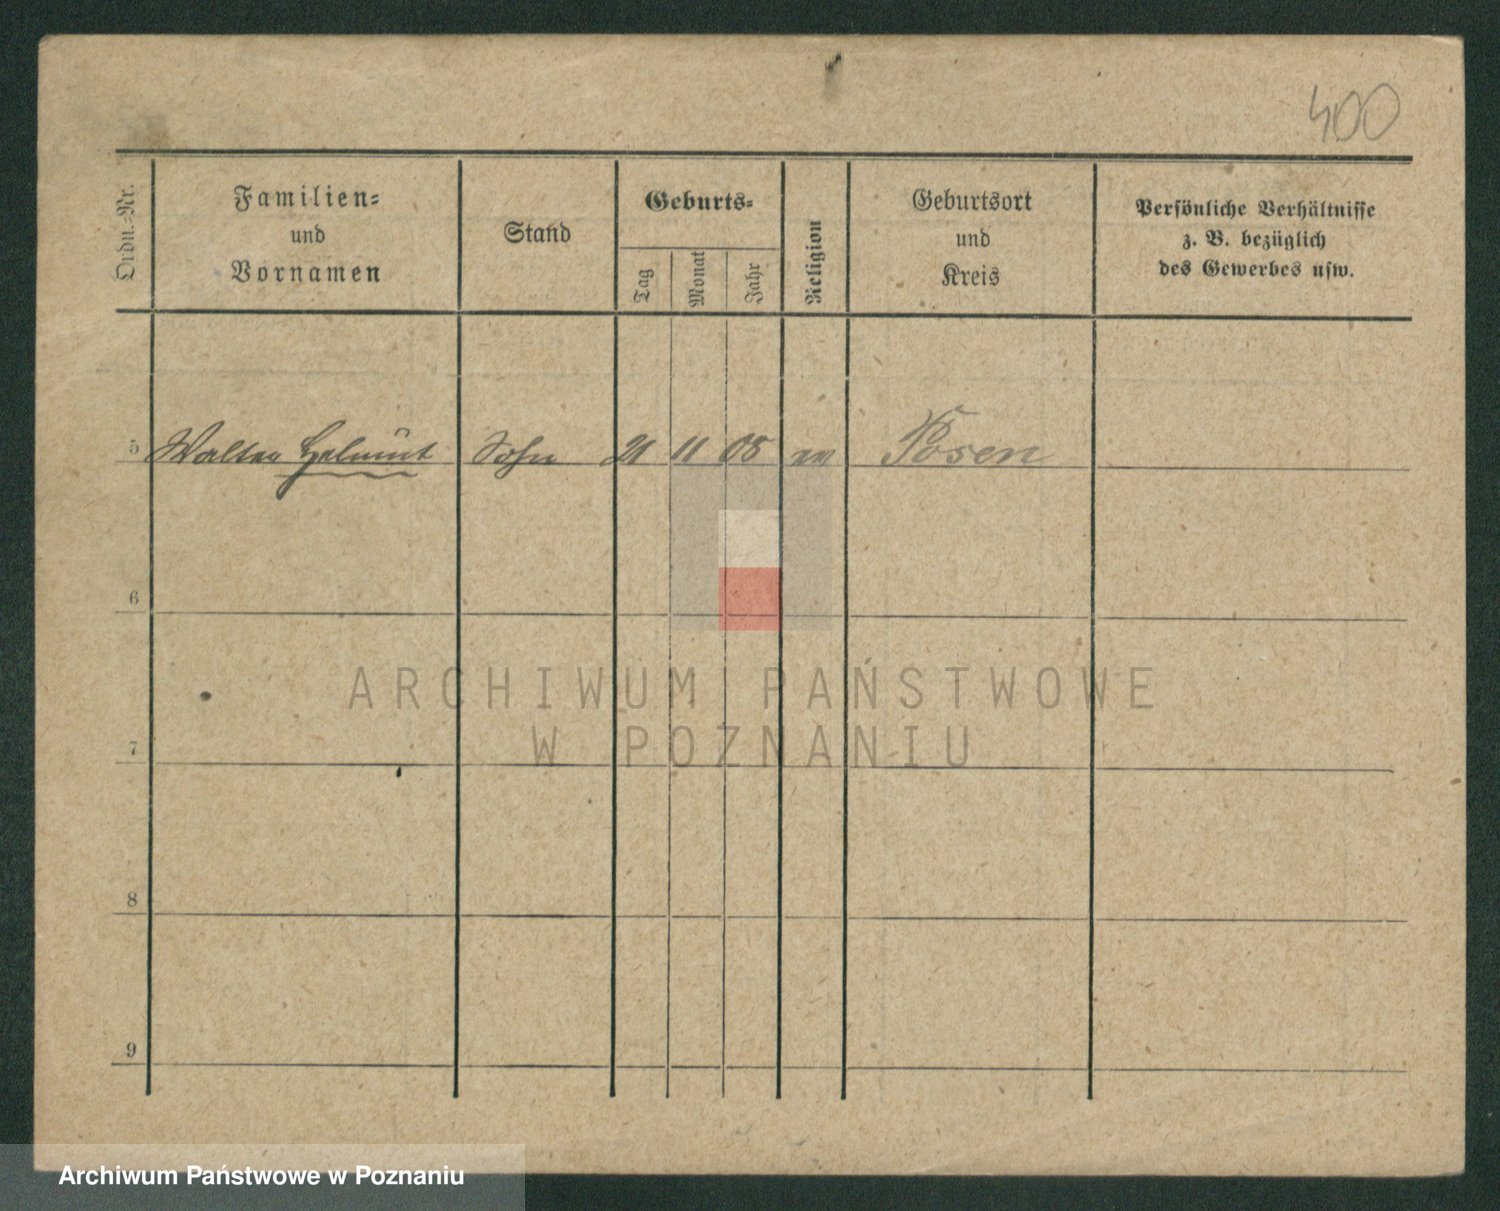 400
Ordn.-Nr.
Familien-
und
Vornamen
Stand
Geburts-
Tag
Monat
Jahr
Religion
Geburtsort
und
Kreis
Persönliche Verhältnisse
z. B. bezüglich
des Gewerbes usw.
5 Walter Helmut Sohn 21 11 08 ev Posen
6
7
8
9
ARCHIWUM PAŃSTWOWE
W POZNANIU
Archiwum Państwowe w Poznaniu